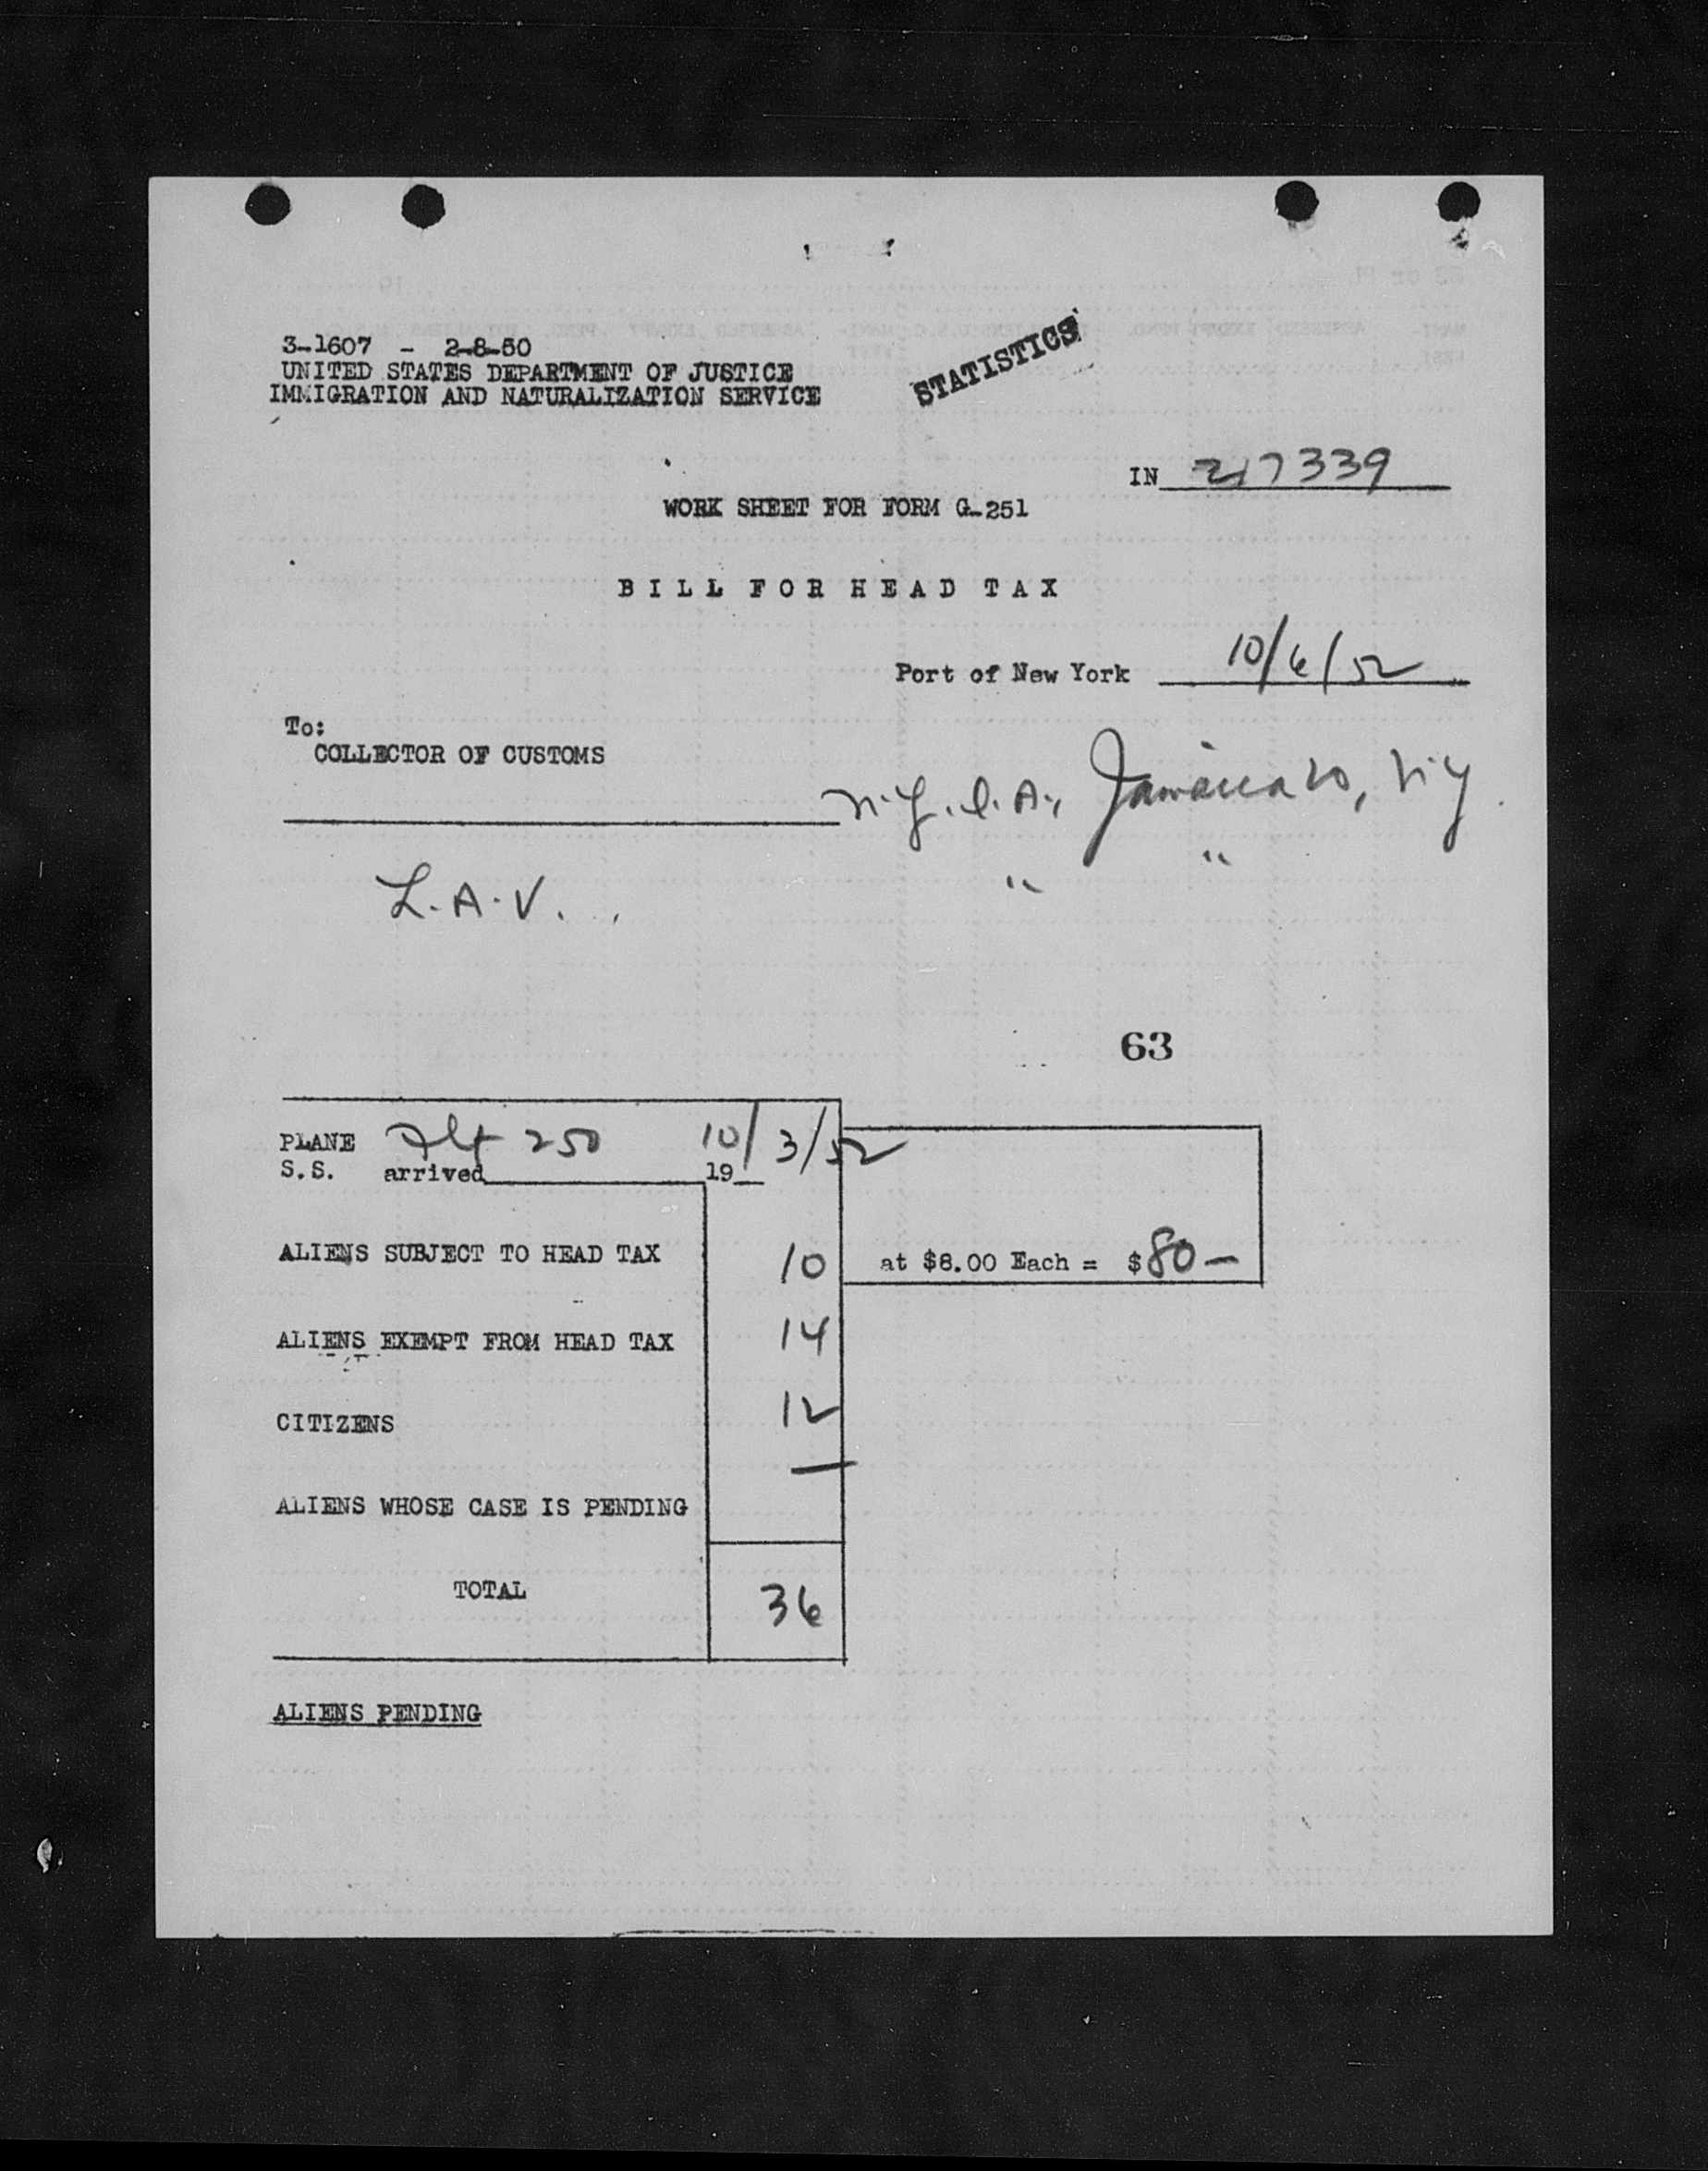 3-1607 - 2-8-50
UNITED STATES DEPARTMENT OF JUSTICE
IMMIGRATION AND NATURALIZATION SERVICE
STATISTICS
IN 217339
WORK SHEET FOR FORM G-251
BILL FOR HEAD TAX
Port of New York 10/6/52
To:
COLLECTOR OF CUSTOMS
N.Y.I.A., Jamaica 20, N.Y.
L.A.V. " "
63
PLANE Flt 250 10/3/52
S.S. arrived 19
ALIENS SUBJECT TO HEAD TAX 10 at $8.00 Each = $80—
ALIENS EXEMPT FROM HEAD TAX 14
CITIZENS 12
—
ALIENS WHOSE CASE IS PENDING
TOTAL 36
ALIENS PENDING